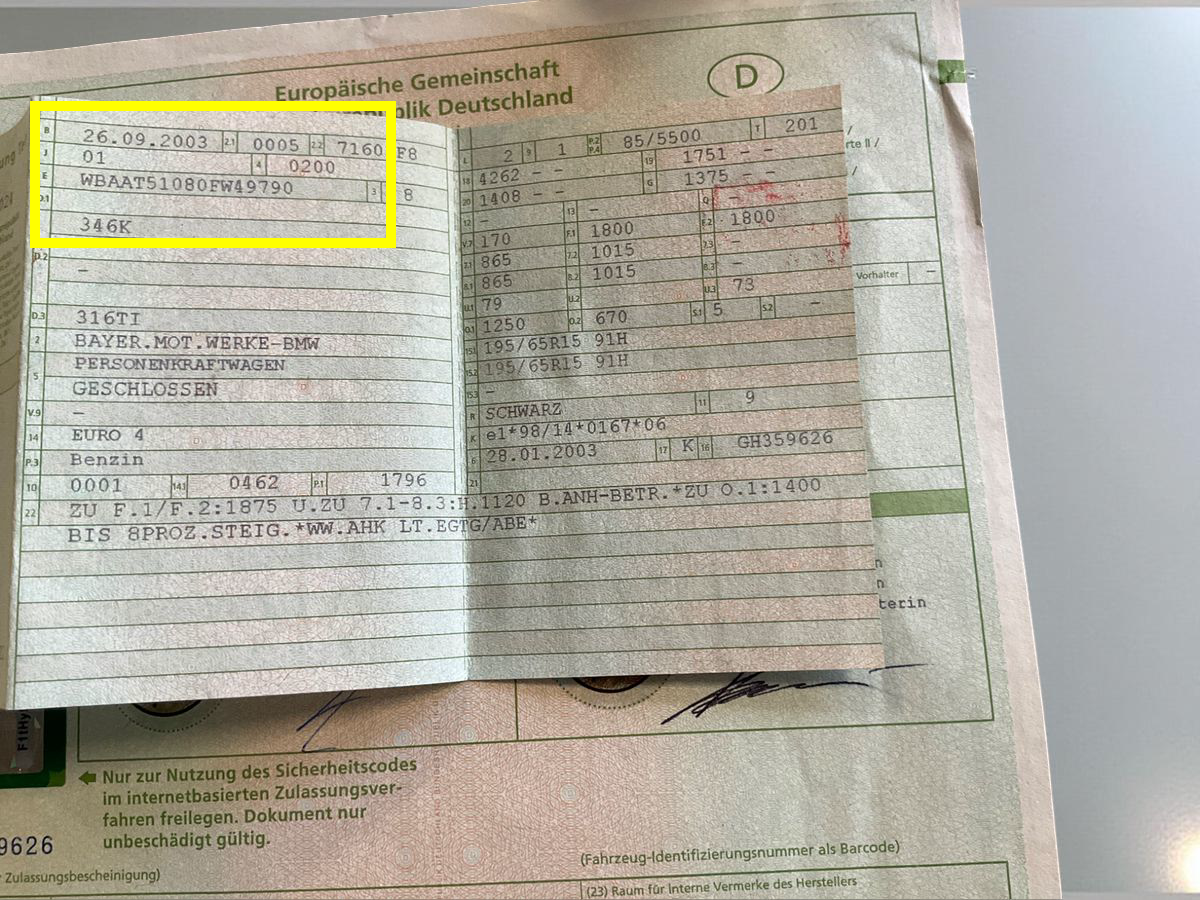 Europäische Gemeinschaft
D
republik Deutschland
B 26.09.2003 2.1 0005 2.2 7160 F8
J 01 4 0200
E WBAAT51080FW49790 3 8
D.1
346K
D.2 -
D.3 316TI
2 BAYER.MOT.WERKE-BMW
5 PERSONENKRAFTWAGEN
GESCHLOSSEN
V.9 -
14 EURO 4
P.3 Benzin
10 0001 14.1 0462 P.1 1796
22 ZU F.1/F.2:1875 U.ZU 7.1-8.3:H.1120 B.ANH-BETR.*ZU O.1:1400
BIS 8PROZ.STEIG.*WW.AHK LT.EGTG/ABE*
L 2 9 1 P.2 P.4 85/5500 T 201
18 4262 - - 19 1751 - -
20 1408 - - G 1375 - -
12 - 13 - Q -
V.7 170 F.1 1800 F.2 1800
7.1 865 7.2 1015 7.3 -
8.1 865 8.2 1015 8.3 -
U.1 79 U.2 U.3 73
O.1 1250 O.2 670 S.1 5 S.2 -
15.1 195/65R15 91H
15.2 195/65R15 91H
15.3 -
R SCHWARZ 11 9
K e1*98/14*0167*06
6 28.01.2003 17 K 16 GH359626
21
rte II /
Vorhalter -
n
n
terin
Nur zur Nutzung des Sicherheitscodes
im internetbasierten Zulassungsver-
fahren freilegen. Dokument nur
unbeschädigt gültig.
9626
Zulassungsbescheinigung)
(Fahrzeug-Identifizierungsnummer als Barcode)
(23) Raum für Interne Vermerke des Herstellers